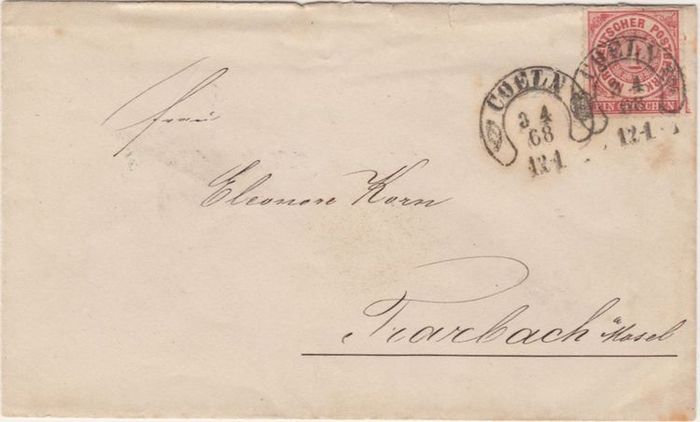 NORDDEUTSCHER POSTBEZIRK
EIN GROSCHEN
COELN
4
68
12-1
COELN
3 4
68
12-1
Frau
Eleonore Korn
Trarbach a Mosel